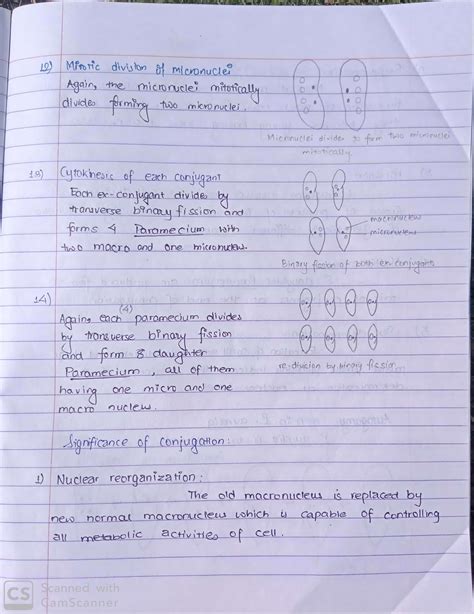 12) Mitotic division of micronuclei
Again, the micronuclei mitotically
divides forming two micronuclei.
Micronuclei divides to form two micronuclei
mitotically.
13) Cytokinesis of each conjugant
Each ex-conjugant divides by
transverse binary fission and
forms 4 Paramecium with
two macro and one micronucleus.
macronucleus
micronucleus
Binary fission of both ex conjugants
14)
(4)
Again, each paramecium divides
by transverse binary fission
and form 8 daughter
Paramecium, all of them
having one micro and one
macro nucleus.
re-division by binary fission
Significance of conjugation:
1) Nuclear reorganization:
The old macronucleus is replaced by
new normal macronucleus which is capable of controlling
all metabolic activities of cell.
CS Scanned with
CamScanner